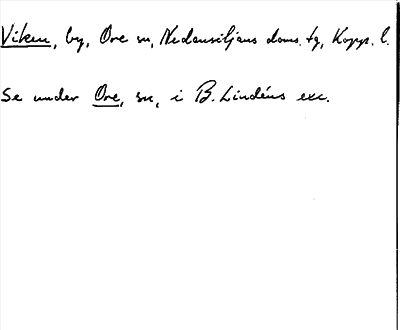 Viken, by, Ore sn, Nedansiljans doms. tg, Kopp. l.
Se under Ore, sn, i B. Lindéns exc.